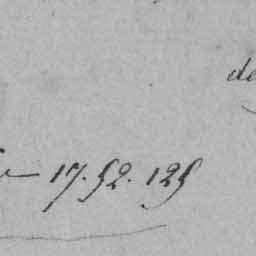 de
17.52.125